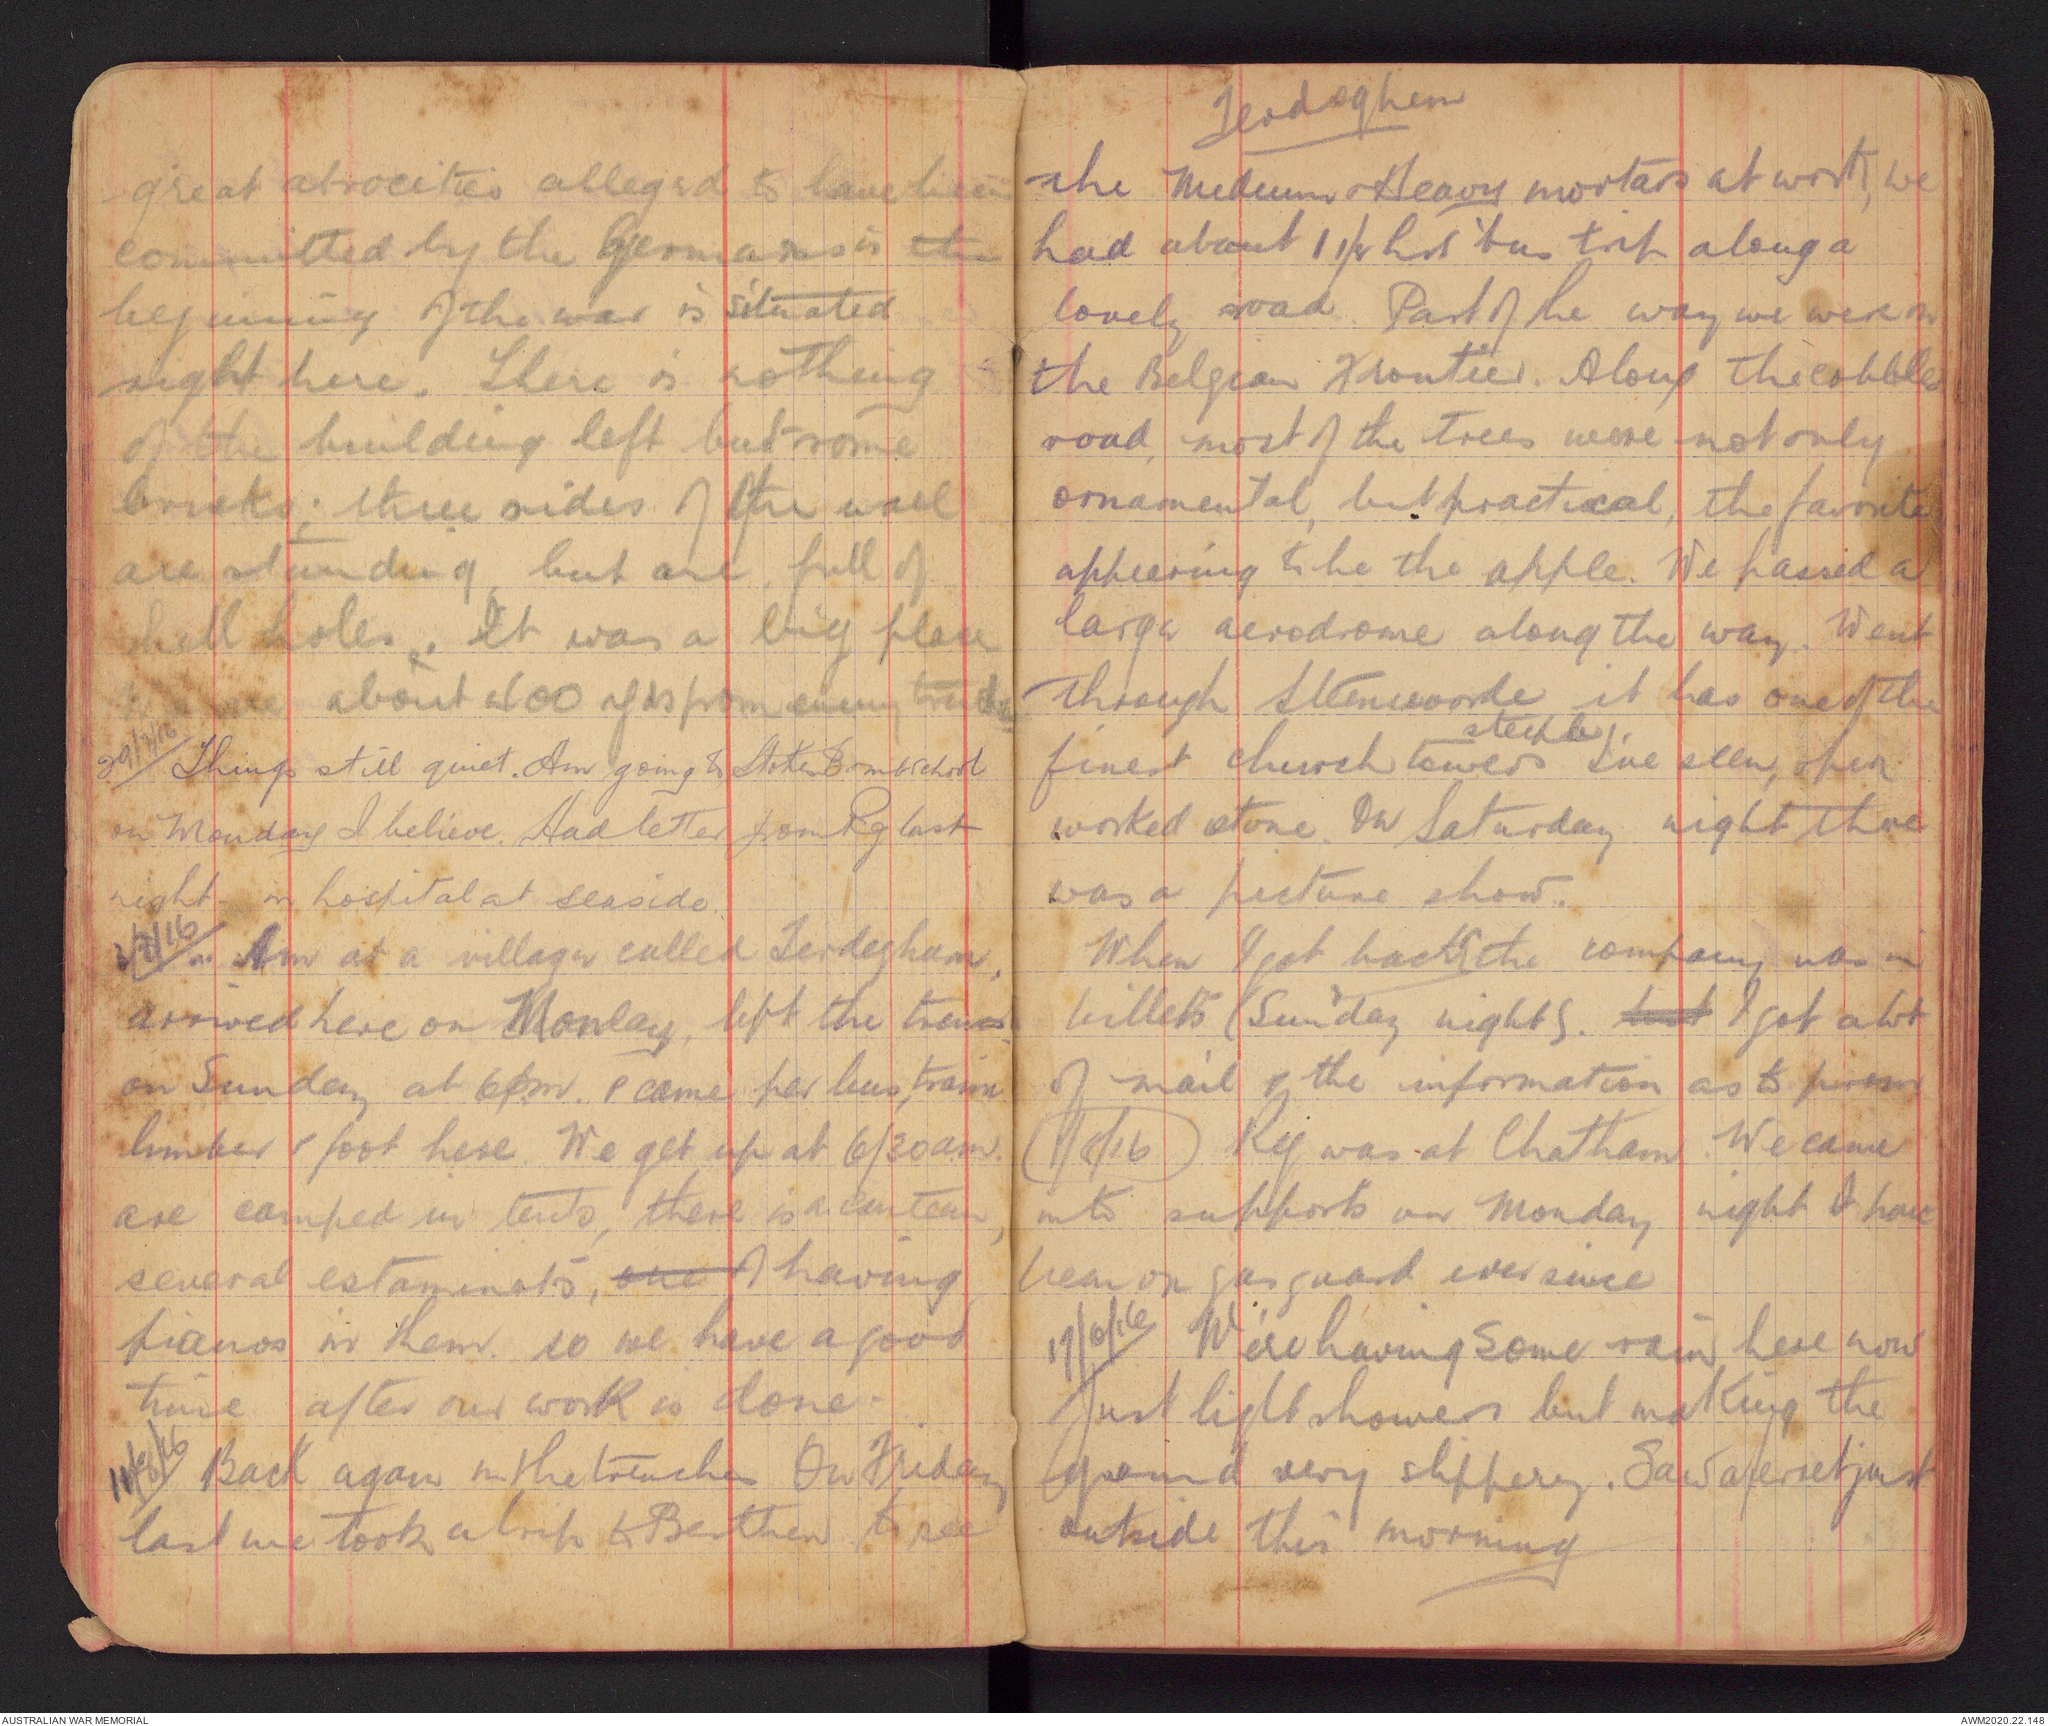 great atrocities alleged to have been
committed by the Germans in the
beginning of the war is situated
right here. There is nothing
of the building left but some
bricks; three sides of the wall
are standing, but are full of
shell holes. It was a big place
are about 400 yds from enemy trenches
29/7/16 Things still quiet. Am going to Stokes Bomb school
on Monday I believe. Had letter from Rg last
night - in hospital at seaside.
2/8/16 Am at a village called Terdeghem,
arrived here on Monday, left the trenches
on Sunday at 6 pm. & came per bus, train
limber & foot here. We get up at 6/30 am.
are camped in tents, there is a canteen,
several estaminets, one of having
pianos in them. so we have a good
time after our work is done.
11/8/16 Back again in the trenches On Friday
last we took a trip to Berthen to see
Terdeghem
the Medium & Heavy mortars at work, we
had about 1 1/2 hrs bus trip along a
lovely road. Part of the way we were on
the Belgian Frontier. Along the cobbled
road, most of the trees were not only
ornamental, but practical, the favorite
appearing to be the apple. We passed a
large aerodrome along the way. Went
through Steenvoorde it has one of the
steeple
finest church towers I've seen, open
worked stone. On Saturday night there
was a picture show.
When I got back the company was in
billets (Sunday night). but I got a lot
of mail & the information as to from
Reg was at Chatham. We came
into supports on Monday night & have
been on gas guard ever since
17/8/16 We're having some rain here now
Just light showers but making the
ground very slippery. Saw a ferret just
outside this morning
AUSTRALIAN WAR MEMORIAL
AWM2020.22.148